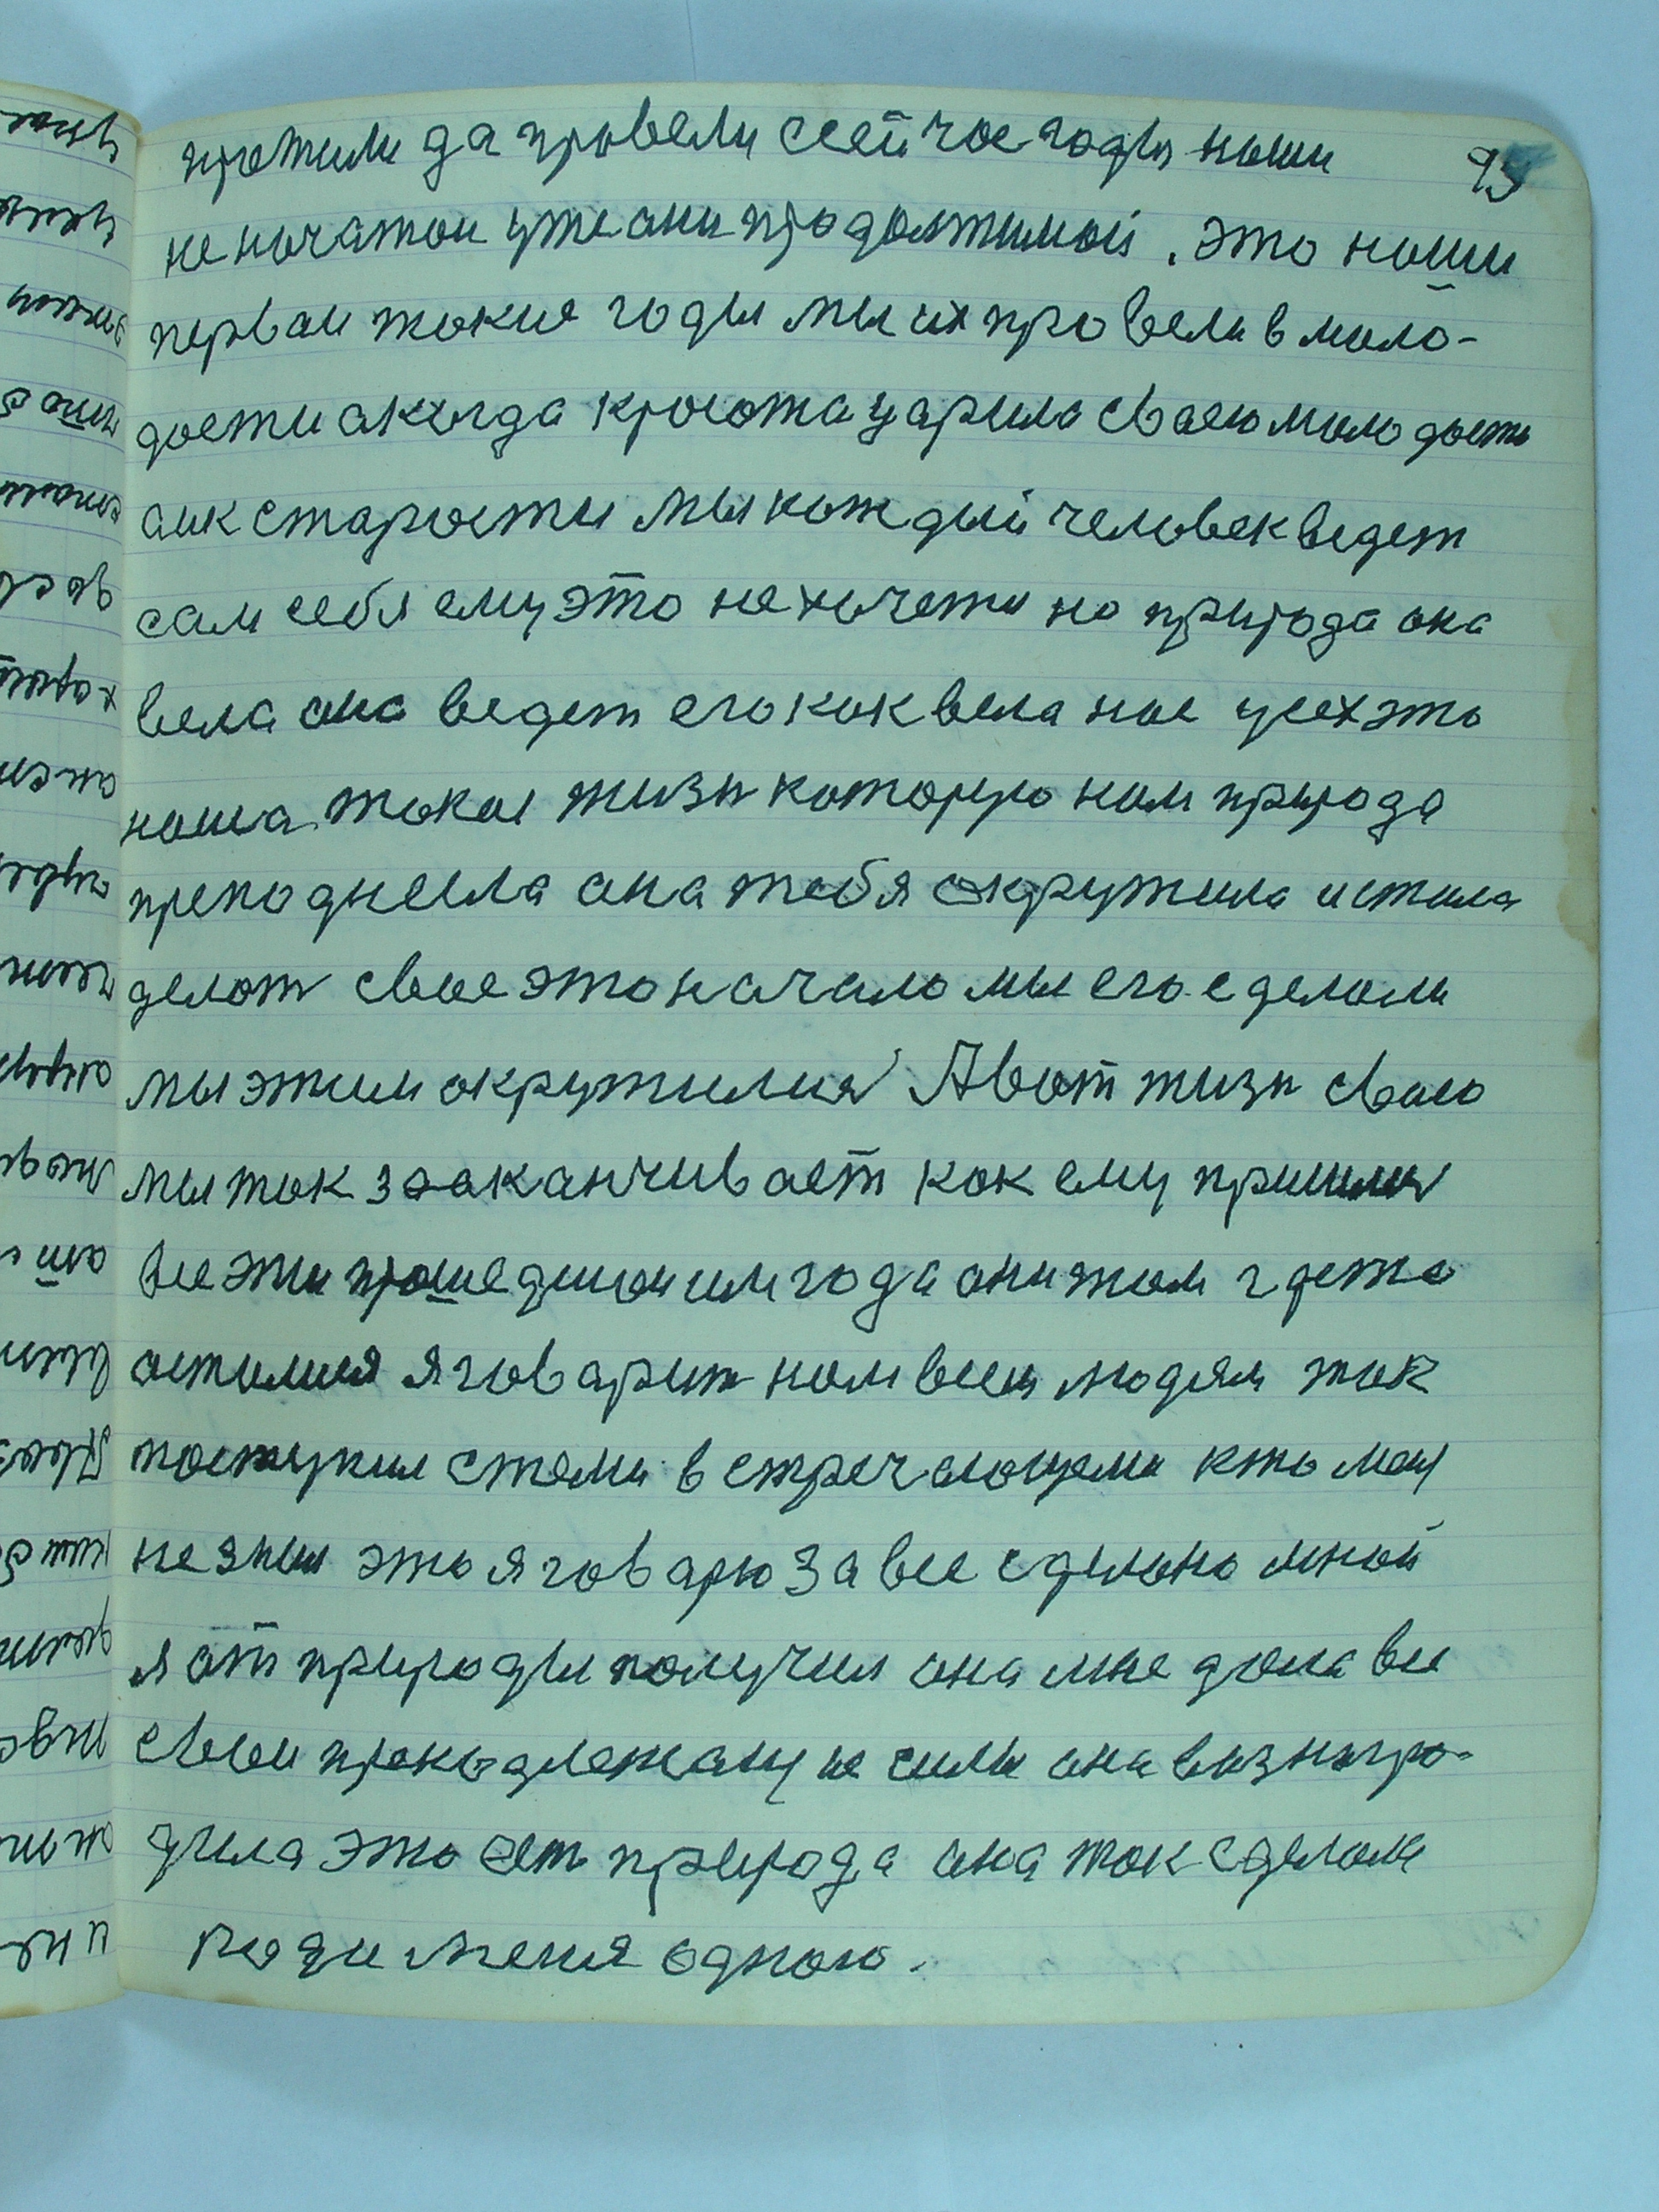 95
прожили да провели сейчас годы наши
не начатои уже ани продолжимай. это наши
первои такие годы мы их провели в моло-
дости а когда кросота царила сваею молодость
аик старости мы каждый человек ведет
сам себя ему это не хочетя но природа она
вела она ведет его как вела нас усех это
наша такая жизн которую нам природа
преподнесла ана тебя окружила и стала
делат свое это начало мы его сделали
мы этим окружилися А вот жизн сваю
мы так заканчивает как ему пришлис
все эти прошедшии им года ани там где то
осталися я говарит нам всем людям так
поступил стеми встречающеми кто мог
не знал это я говарю за все сделано мной
я от природы получил ана мне дала все
свои принадлежащие силы ана вазнагро-
дила это ест природа ана так сделала
ради меня одного.